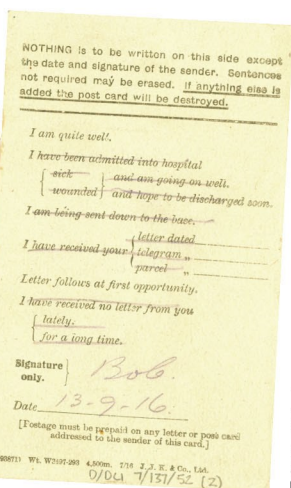 NOTHING is to be written on this side except
the date and signature of the sender. Sentences
not required may be erased. If anything else is
added the post card will be destroyed.
I am quite well.
I have been admitted into hospital
{ sick } and am going on well.
{ wounded } and hope to be discharged soon.
I am being sent down to the base.
I have received your { letter dated
telegram „
parcel „
Letter follows at first opportunity.
I have received no letter from you
{ lately.
for a long time.
Signature only. } Bob.
Date 13-9-16.
[Postage must be prepaid on any letter or post card
addressed to the sender of this card.]
93871) Wt. W2497-293 4,500m. 7/16 J. J. K. & Co., Ltd.
D/DLI 7/137/52 (2)